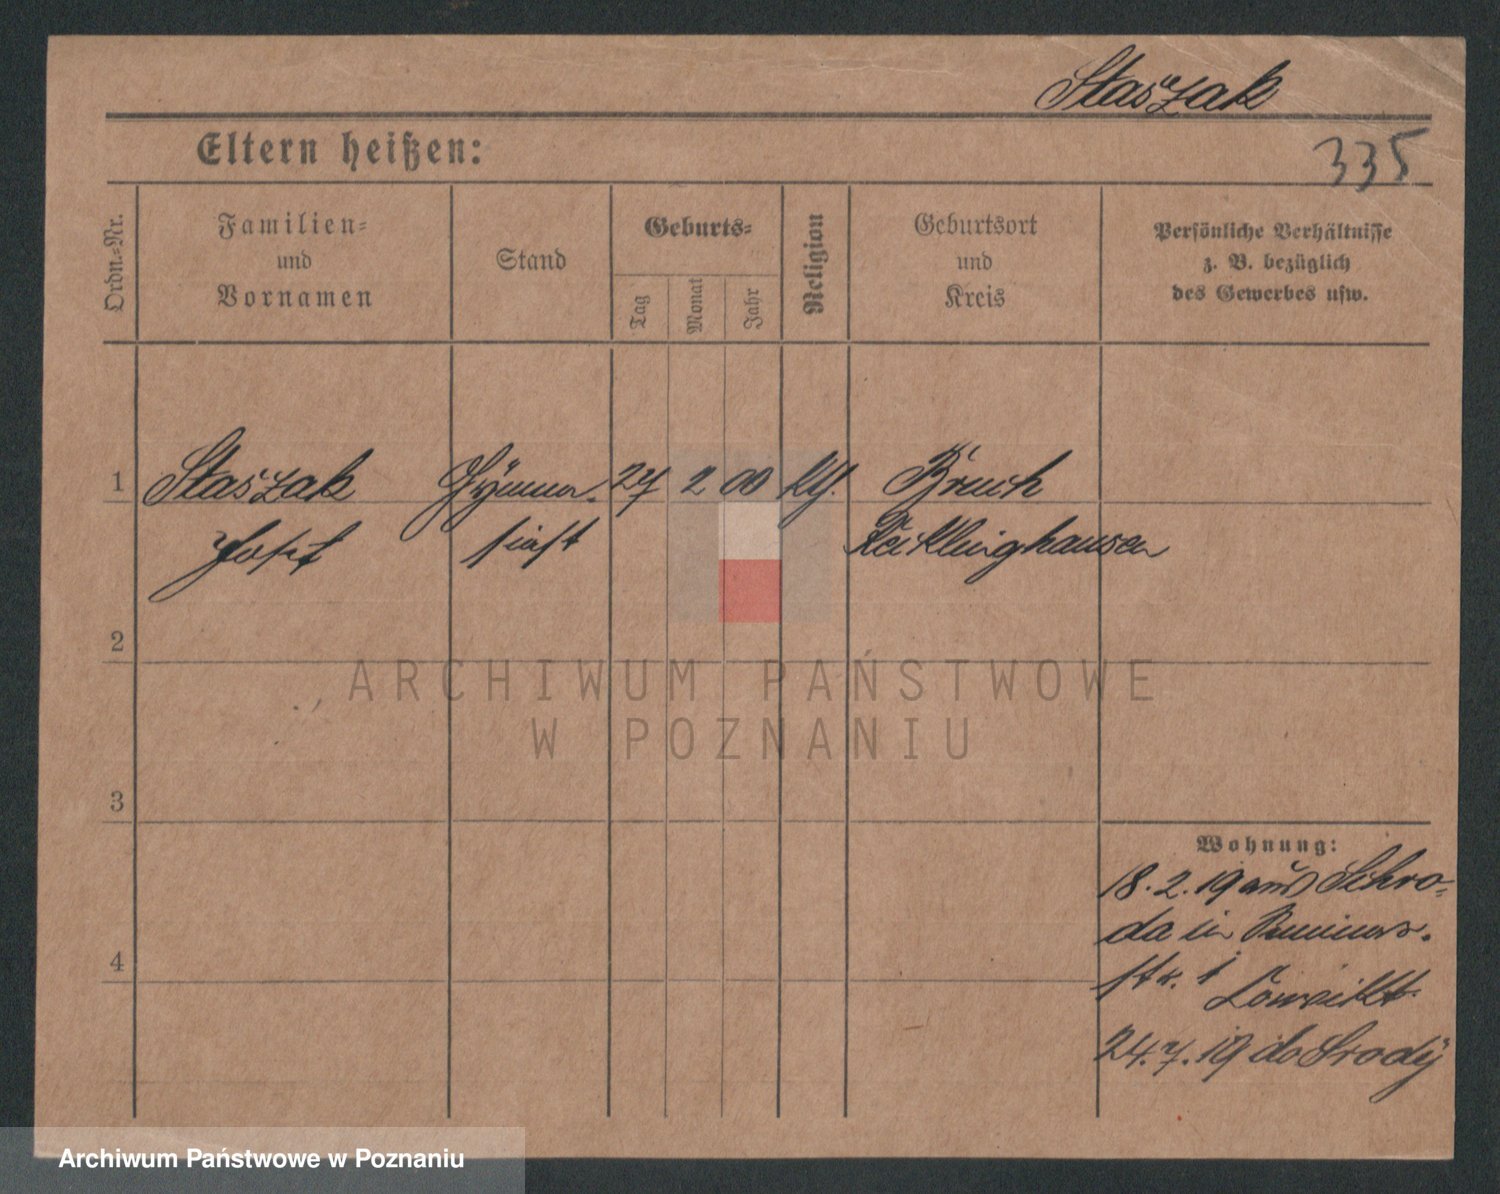 Staszak
Eltern heißen:
335
Ordn.-Nr.
Familien-
und
Vornamen
Stand
Geburts-
Tag
Monat
Jahr
Religion
Geburtsort
und
Kreis
Persönliche Verhältnisse
z. B. bezüglich
des Gewerbes usw.
1 Staszak Gymna- 27 2 00 Bruch
Josef siast Recklinghausen
2
ARCHIWUM PAŃSTWOWE
W POZNANIU
3
Wohnung:
18.2.19 aus Schro-
da in
4
str. 1
24.7.19 do Środy
Archiwum Państwowe w Poznaniu